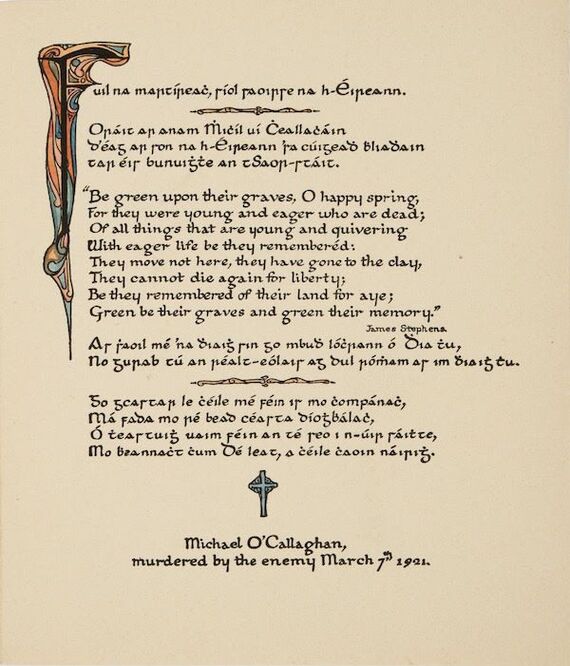 Fuil na mairtíreaċ, síol saoirse na h-Éireann.
Oráit ar anam Ṁíċíl uí Ċeallaċáin
d'éag ar son na h-Éireann 'sa cúigeaḋ bliaḋain
tar éis bunuiġṫe an tSaor-stáit.
"Be green upon their graves, O happy spring,
For they were young and eager who are dead;
Of all things that are young and quivering
With eager life be they remembered:
They move not here, they have gone to the clay,
They cannot die again for liberty;
Be they remembered of their land for aye;
Green be their graves and green their memory."
James Stephens.
As ṡaoil mé 'na ḋiaiġ sin go mbuḋ lóċrann ó Ḋia ṫu,
No gurab tú an réalt-eólais ag dul róṁam as im ḋiaiġ ṫu.
Go gcastar le ċéile mé féin is mo ċompánaċ,
Má fada mo ré bead céasta díoġḃálaċ,
Ó ṫeastuiġ uaim féin an té seo i n-úir sáiṫte,
Mo ḃeannaċt ċum Dé leat, a ċéile ċaoin náiriġ.
Michael O'Callaghan,
murdered by the enemy March 7th 1921.